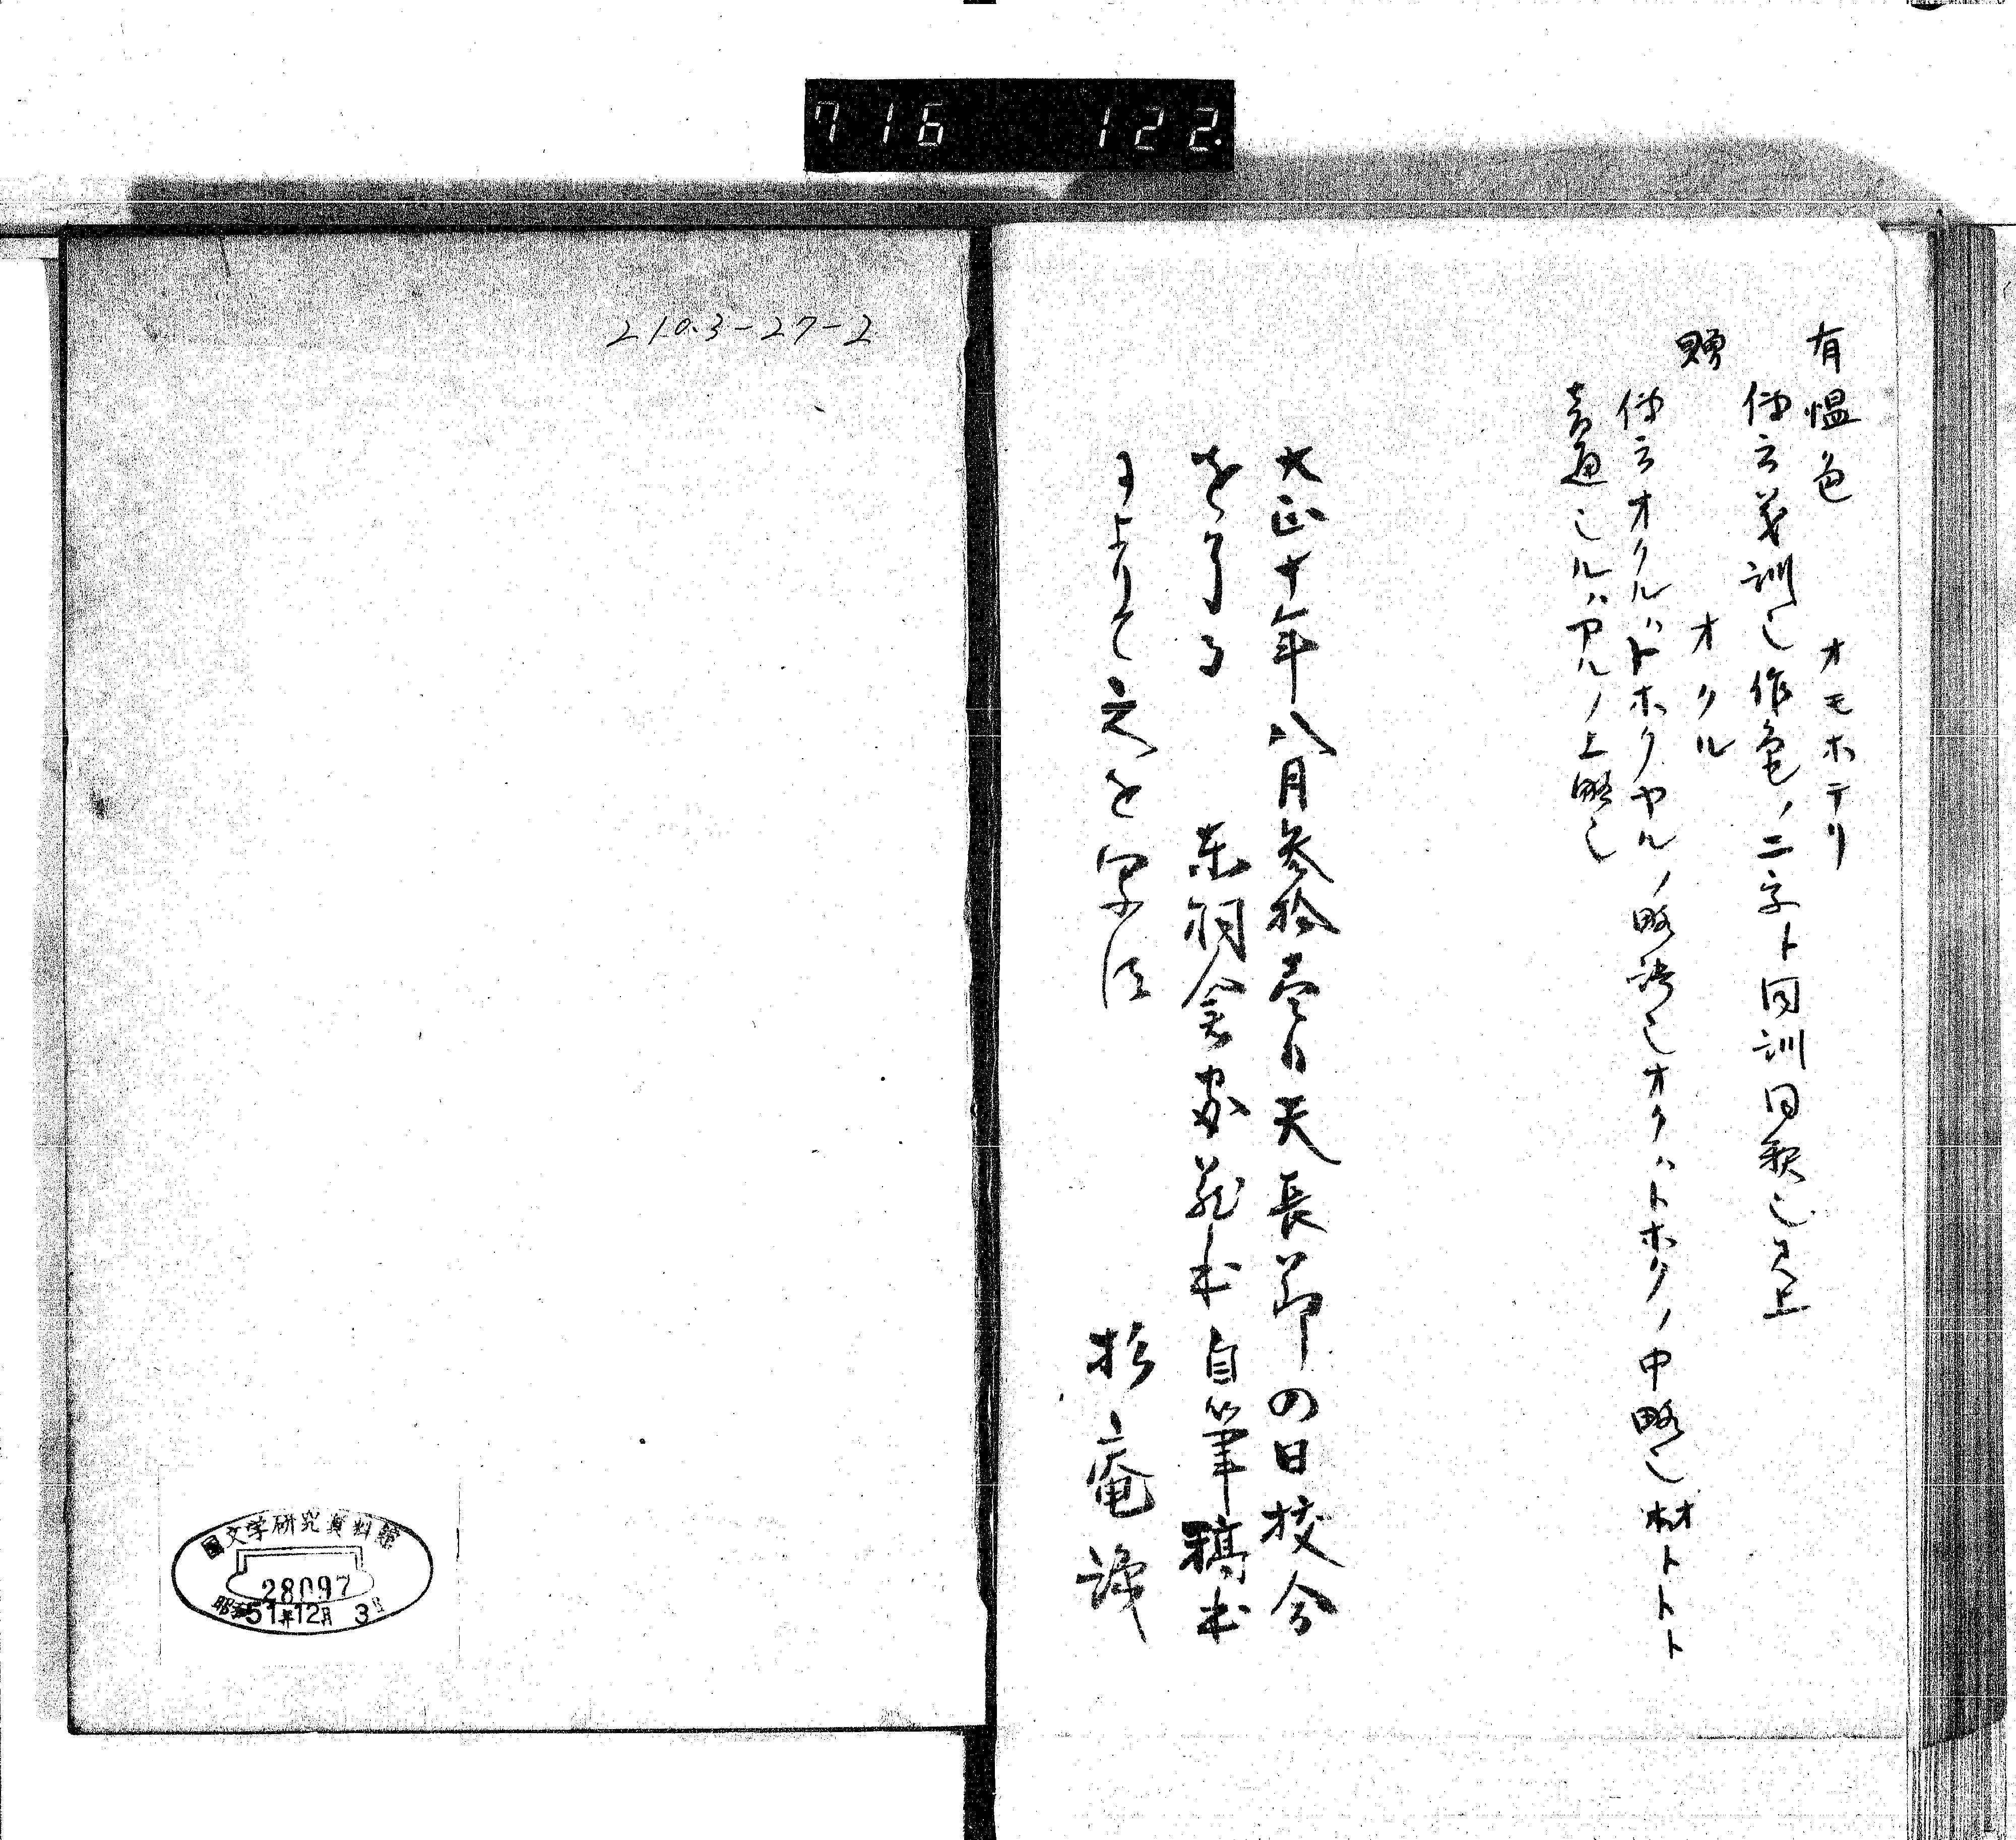 716 122
有愠色 オモホテリ
傳云義訓也作色ノ二字ト同訓同訳也見上
贈 オクル
傳云オクルハトホクヤルノ略語也オクハトホクノ中略也オトトト
音通也ルハアルノ上略也
大正十年八月参拾壱日天長節の日校合
を了る 東羽舎家蔵本自筆稿本
によりて之を写活
杉庵識
210.3-27-2
國文学研究資料館
28097
昭和51年12月3日